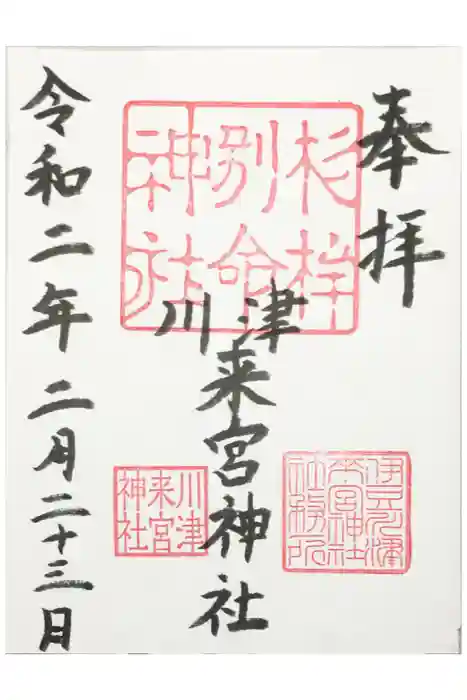 奉拝
杉桙
別命
神社
川津
来宮神社
川津
来宮
神社
来宮神社
社務所
令和二年二月二十三日